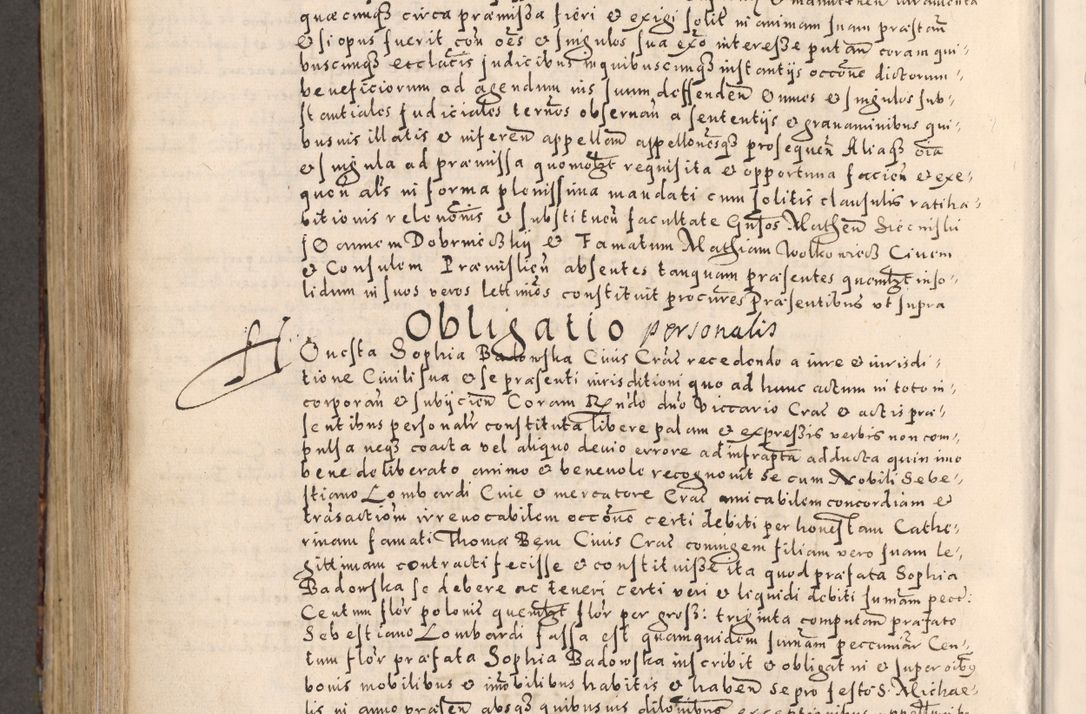 quæcunqȝ circa præmissa fieri et exigi solit in animam suam præstan
et si opus fuerit con oēs et singulos sua exō interesse putan coram qui-
buscunqȝ et clācis judicibus inquibuscunqȝ instantijs occōne dictorum
beneficiorum ad agendum iūs suum deffenden Omnes et singulos sub-
stantiales Judiciales termōs observan a sententijs et gravaminibus qui-
busvis illatis et inferen appellan appellonesqȝ prosequen Aliaqȝ oīa
et singula ad præmissa quomōlt requisita et opportuna facien et exe-
quen als in forma plenissima mandati cum solitis clausulis ratiha-
bitionis relevonis et substituen facultate Gnsos Mathen
Joannem Dobrnieczkij et Famatum Mathiam Wolkowicz Civem
et Consulem Præmislien absentes tanquam præsentes quemlt inso-
lidum in suos veros lettimos constituit procures Præsentibus ut supra
Obligatio personalis
Honesta Sophia Badowska Civis Crac recedendo a iure et iurisdi-
tione Civili sua et se præsenti iurisditioni quo ad hunc actum in toto in-
corporan et subijcien Coram Rndo dno Viccario Crac et actis præ-
sentibus personalr constituta libere palam et expressis verbis non com-
pulsa neqȝ coacta vel aliquo devio errore ad infrapta adducta quin imo
bene deliberato animo et benevole recognovit se cum Nobili Sebe-
stiano Lombardi Cive et mercatore Crac amicabilem concordiam et
trāsactiom irrevocabilem occōne certi debiti per honestam Cathe-
rinam famati Thomæ Bem Civis Crac coniugem filiam vero suam le-
gittimam contracti fecisse et constituisse ita quod præfata Sophia
Badowska se debere ac teneri certi veri et liquidi debiti sumam pecc:
Centum flor poloniĉ quemlt flor per gross: triginta computan præfato
Sebestiano Lombardi fassa est quamquidem sumam peccuniar Cen-
tum flor præfata Sophia Badowska inscribit et obligat in et super oibȝ
bonis mobilibus et imōbilibus habitis et haben se pro festo S. Michae-
lis in anno præsen absqȝ quibusvis dilōnibus exceptionibus